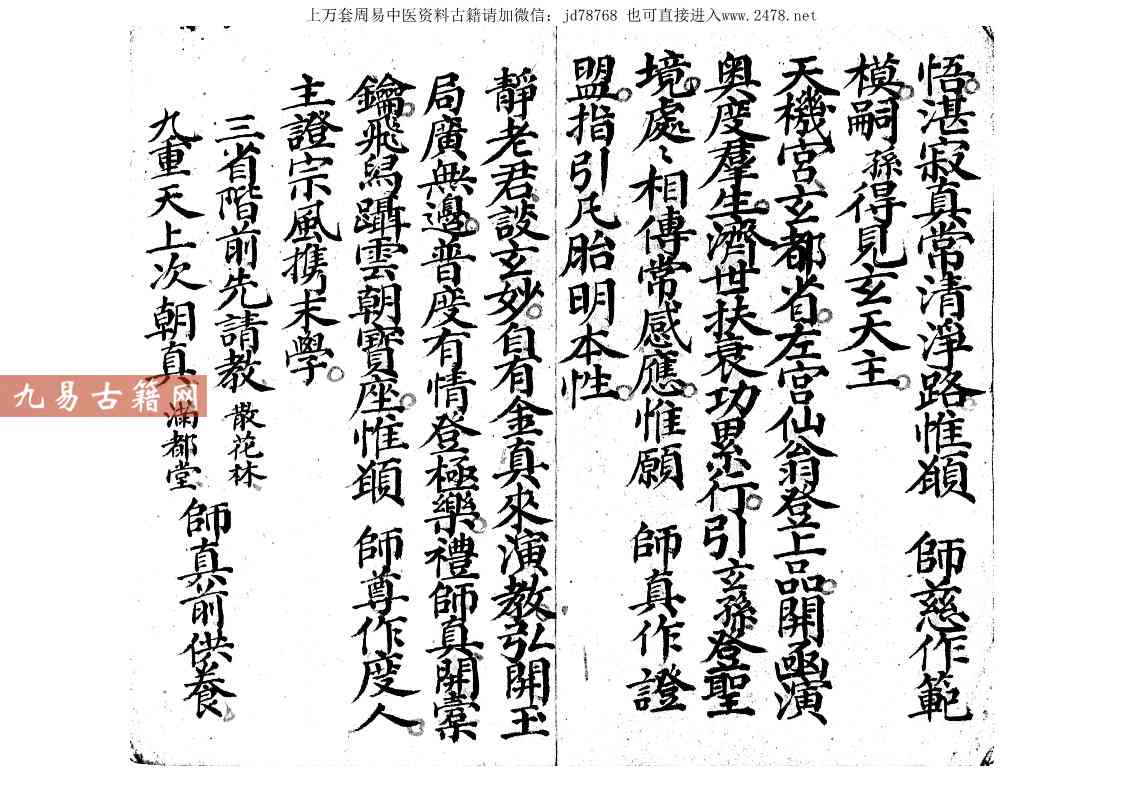 上万套周易中医资料古籍请加微信：jd78768 也可直接进入www.2478.net
悟湛寂真常清淨路惟願 師慈作範
模嗣孫得見玄天主
天機宮玄都省左宮仙翁登上品開函演
奥度羣生濟世扶衰功累行引玄孫登聖
境處〻相傳常感應惟願 師真作證
盟指引凡胎明本性
靜老君談玄妙自有金真來演教弘開玉
局廣無邊普度有情登極樂禮師真開橐
鑰飛舄躡雲朝寶座惟願 師尊作度人
主證宗風携末學
三省階前先請教 散花林
九重天上次朝真 滿都堂 師真前供養
九易古籍网